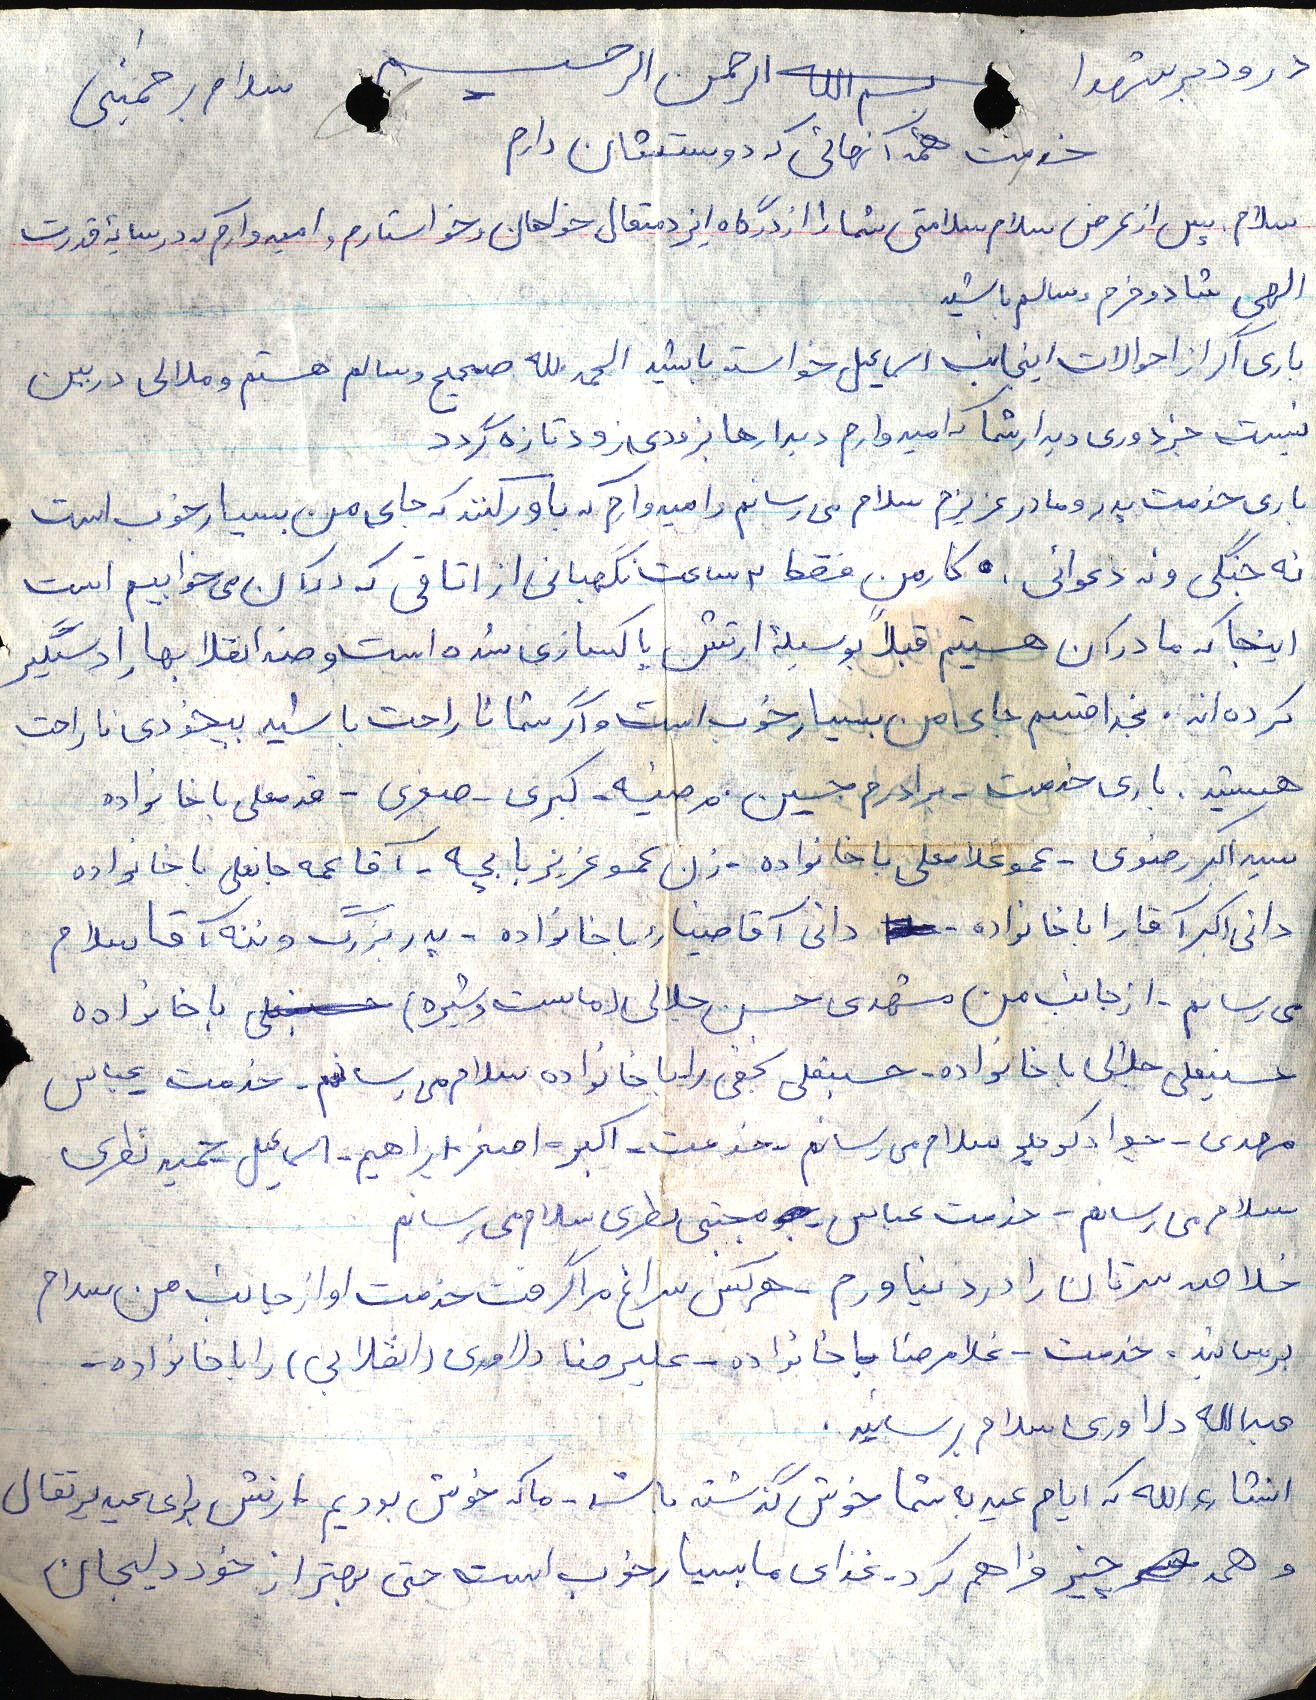 درود بر شهدا بسم الله الرحمن الرحیم سلام بر خمینی
خدمت همهٔ آنهائی که دوستشان دارم
سلام. پس از عرض سلام سلامتی شما را از درگاه ایزد متعال خواهان و خواستارم و امیدوارم که در سایهٔ قدرت
الهی شاد و خرم و سالم باشید
باری اگر از احوالات اینجانب اسماعیل خواسته باشید الحمد لله صحیح و سالم هستم و ملالی در بین
نیست جز دوری دیدار شما که امیدوارم دیدارها بزودی زود تازه گردد
باری خدمت پدر و مادر عزیزم سلام می رسانم و امیدوارم که باور کنند که جای من بسیار خوب است
نه جنگی و نه دعوائی. کار من فقط ۲ ساعت نگهبانی از اتاقی که در آن می خوابیم است
اینجا که ما در آن هستیم قبلاً بوسیلهٔ ارتش پاکسازی شده است و ضد انقلابها را دستگیر
کرده اند. بخدا قسم جای من بسیار خوب است و اگر شما ناراحت باشید بیخودی ناراحت
هستید. باری خدمت - برادرم حسین. مرضیه - کبری - صغری - قدمعلی با خانواده
سید اکبر رضوی - عمو غلامعلی با خانواده - زن عمو عزیز با بچه - آقا عمه جانعلی با خانواده
دائی اکبر آقا را با خانواده - دائی آقا ضیا را با خانواده - پدر بزرگ و ننه آقا سلام
می رسانم - از جانب من مشهدی حسن جلالی (ماست و شیره) با خانواده
حسینعلی جلالی با خانواده - حسینعلی نجفی را با خانواده سلام می رسانم - خدمت عباس
مهدی - جواد کوچلو سلام می رسانم - خدمت - اکبر - اصغر - ابراهیم - اسماعیل حمید نظری
سلام می رسانم - خدمت عباس - مجتبی نظری سلام می رسانم
خلاصه سرتان را درد نیاورم - هر کس سراغ مرا گرفت خدمت او از جانب من سلام
برسانید. خدمت - غلامرضا با خانواده - علیرضا دلاوری (انقلابی) را با خانواده -
عبدالله دلاوری سلام برسانید.
انشاء الله که ایام عید به شما خوش گذشته باشد - ما که خوش بودیم ارتش برای عید پرتقال
و همه چیز فراهم کرد - غذای ما بسیار خوب است حتی بهتر از خود دلیجان